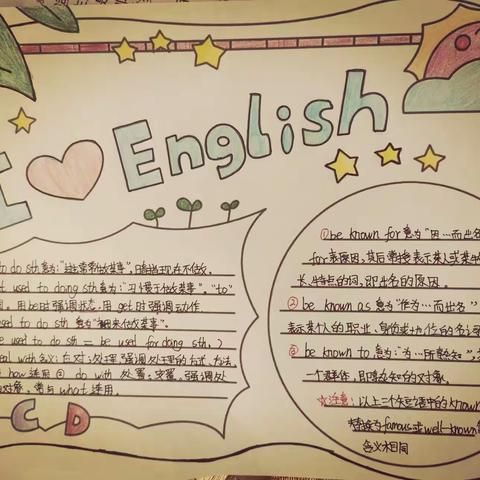 I English
to do sth 意为:"过去常常做某事",暗指现在不做。
t used to doing sth 意为:"习惯于做某事","to"
词,用be时强调状态,用get时强调动作
used to do sth 意为"被用来做某事".
be used to do sth = be used for doing sth.)
eal with 含义:应对;处理,强调处理的方式、方法,
how 连用 ② do with 处置;安置,强调处
对象,常与what 连用.
C D
①be known for 意为"因…而出名
for表原因,其后常接表示某人或某物
长、特点的词,即出名的原因.
② be known as 意为"作为…而出名"
表示某个人的职业、身份或地位的名词
③ be known to 意为:"为…所熟知",
一个群体,即熟知的对象.
☆注意:以上三个短语中的known
替换为famous或well-known
含义相同